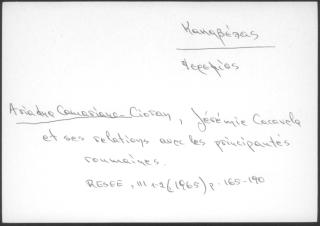 Κακαβέλας
Ιερεμίας
Ariadna Camariano-Cioran, Jérémie Cacavela
et ses relations avec les principautés
roumaines.
RESEE, III 1-2 (1965) p. 165-190